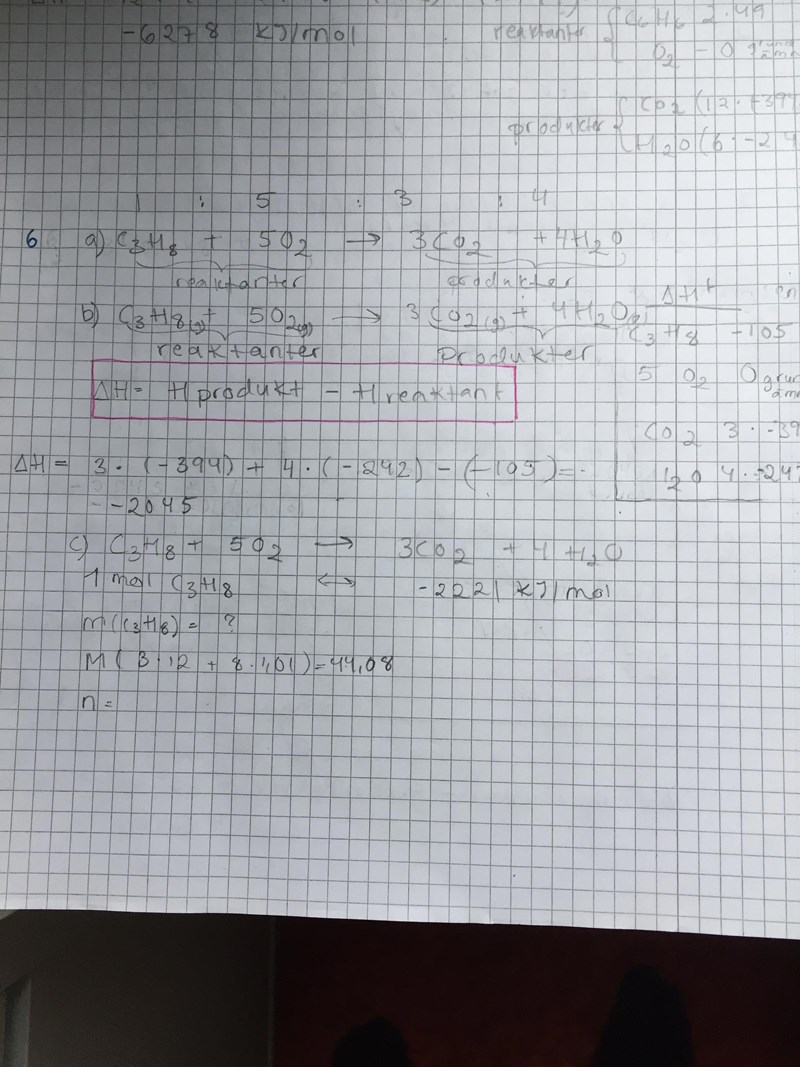 -6278 kJ/mol
reaktanter { C6H6 2·49
O2 - 0
produkter { CO2 (12·-394
H2O (6·-24
1 : 5 : 3 : 4
6 a) C3H8 + 5O2 → 3CO2 + 4H2O
reaktanter produkter
b) C3H8(g) + 5O2(g) → 3CO2(g) + 4H2O(g)
reaktanter produkter
ΔH = Hprodukt - Hreaktant
ΔHf
C3H8 -105
5 O2 0
CO2 3·-39
H2O 4·-242
ΔH = 3·(-394) + 4·(-242) - (-105) =
-2045
c) C3H8 + 5O2 → 3CO2 + 4H2O
1 mol C3H8 ↔ -2221 kJ/mol
m(C3H8) = ?
M(3·12 + 8·1,01) = 44,08
n =